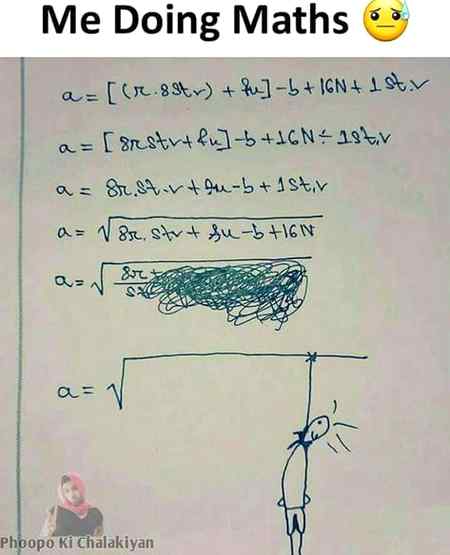 Me Doing Maths 😓
a = [(r.8stv) + fu] - b + 16N + 1st.v
a = [8rstv + fu] - b + 16N ÷ 1st,v
a = 8r.st.v + fu - b + 1st,v
a = √8r, stv + fu - b + 16N
a = √
a = √
Phoopo Ki Chalakiyan